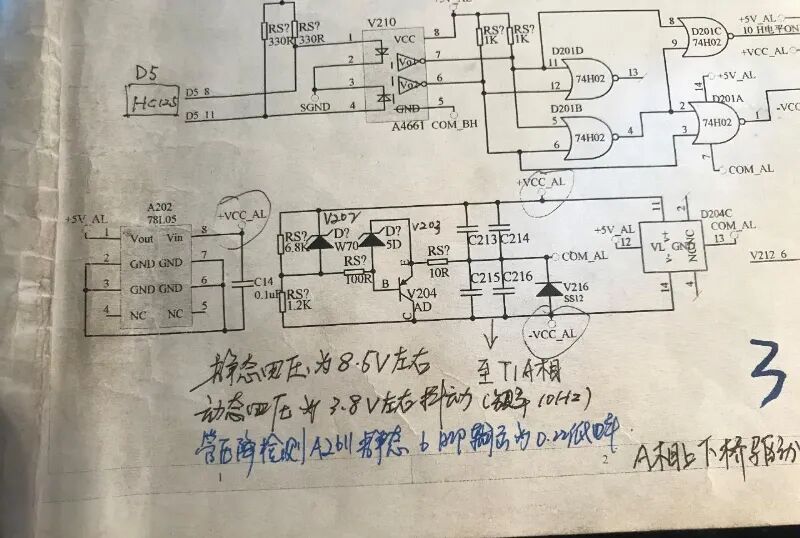 RS? RS?
330R 330R
V210
VCC
Vo1
Vo2
GND
A4661
1
2
3
4
8
7
6
5
D5
HC125
D5_8
D5_11
SGND
COM_BH
RS? RS?
1K 1K
D201D
74H02
11
12
13
D201B
74H02
5
6
4
D201C
74H02
8
9
+5V_AL
10 H电平ON
+VCC_AL
+5V_AL
14
D201A
74H02
2
3
1
7
COM_AL
-VCC
A202
78L05
+5V_AL
+VCC_AL
1 Vout Vin 8
2 GND GND 7
3 GND GND 6
4 NC NC 5
C14
0.1uF
RS?
6.8K
RS?
1.2K
V202
D?
W70
V203
D?
5D
RS?
100R
RS?
10R
B
E
C
V204
AD
C213 C214
C215 C216
+VCC_AL
COM_AL
V216
SS12
-VCC_AL
11
2
D204C
+5V_AL
12
VL
V+
V-
GND
NC
NC
COM_AL
13
14
4
V212_6
静态电压为8.5V左右
至T1A相
动态电压为3.8V左右抖动(频率10Hz)
管压降检测A2611静态6脚输出为0.22低电平
3
1
2
A相上下桥驱动